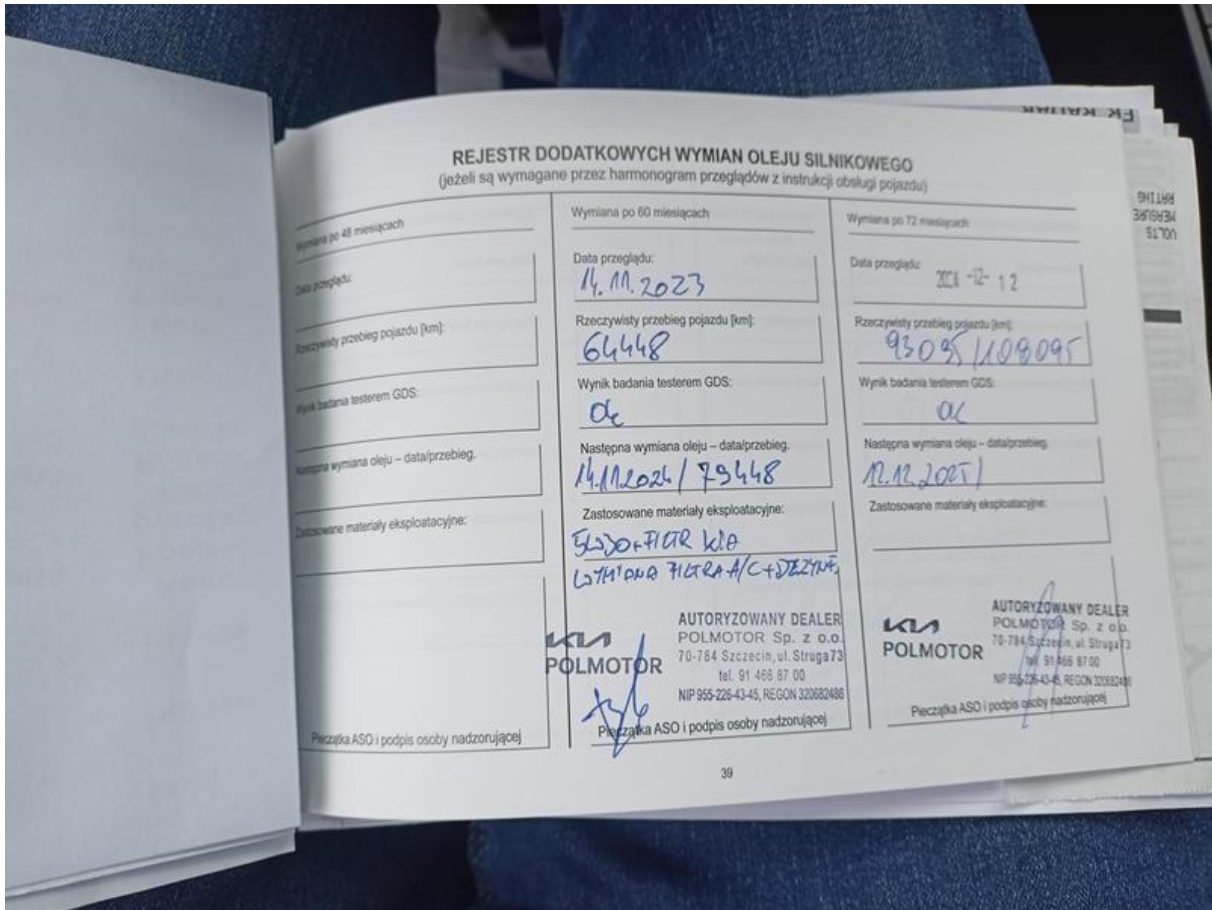 REJESTR DODATKOWYCH WYMIAN OLEJU SILNIKOWEGO
(jeżeli są wymagane przez harmonogram przeglądów z instrukcji obsługi pojazdu)
Wymiana po 48 miesiącach
Data przeglądu:
Rzeczywisty przebieg pojazdu [km]:
Wynik badania testerem GDS:
Następna wymiana oleju – data/przebieg.
Zastosowane materiały eksploatacyjne:
Pieczątka ASO i podpis osoby nadzorującej
Wymiana po 60 miesiącach
Data przeglądu:
14.11.2023
Rzeczywisty przebieg pojazdu [km]:
64448
Wynik badania testerem GDS:
ok
Następna wymiana oleju – data/przebieg.
14.11.2024 / 79448
Zastosowane materiały eksploatacyjne:
5W30+FILTR KIA
WYMIANA FILTRA A/C+DEZYNF.
KIA
POLMOTOR
AUTORYZOWANY DEALER
POLMOTOR Sp. z o.o.
70-784 Szczecin, ul. Struga 73
tel. 91 466 87 00
NIP 955-226-43-45, REGON 320682486
Pieczątka ASO i podpis osoby nadzorującej
Wymiana po 72 miesiącach
Data przeglądu:
-12- 12
Rzeczywisty przebieg pojazdu [km]:
93095 /108095
Wynik badania testerem GDS:
ok
Następna wymiana oleju – data/przebieg.
12.12.2025 /
Zastosowane materiały eksploatacyjne:
KIA
POLMOTOR
AUTORYZOWANY DEALER
POLMOTOR Sp. z o.o.
70-784 Szczecin, ul. Struga 73
tel. 91 466 87 00
NIP 955-226-43-45, REGON 320682486
Pieczątka ASO i podpis osoby nadzorującej
39
FR RADAR
VOLTS
MEASURE
RATING